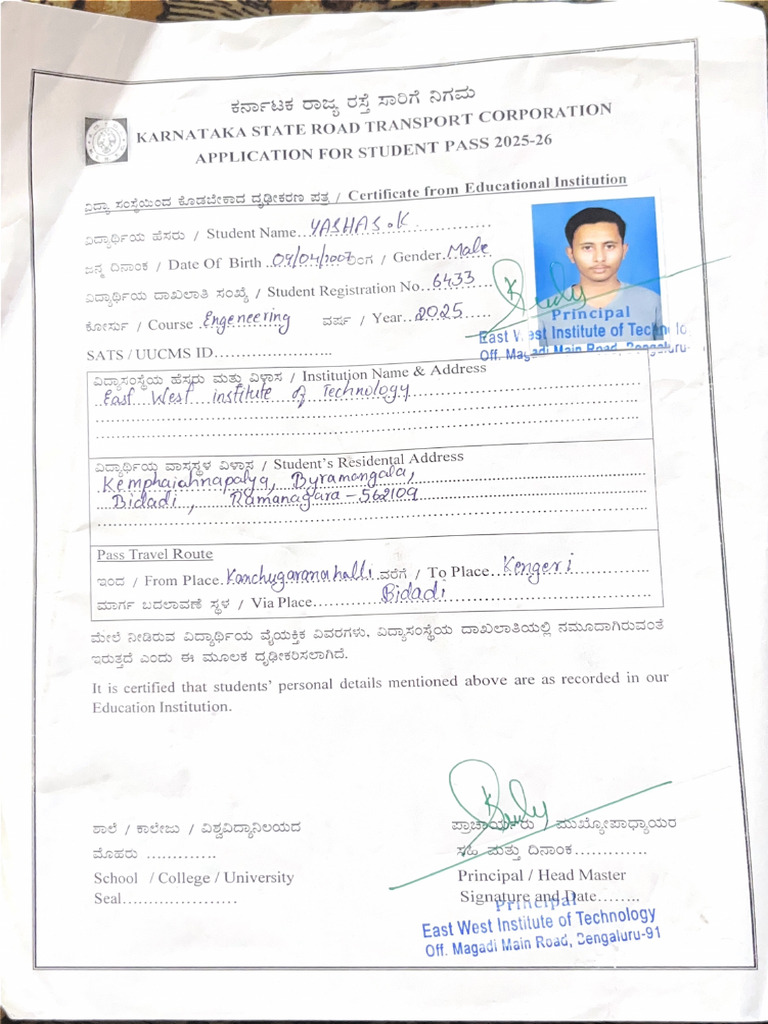 ಕರ್ನಾಟಕ ರಾಜ್ಯ ರಸ್ತೆ ಸಾರಿಗೆ ನಿಗಮ
KARNATAKA STATE ROAD TRANSPORT CORPORATION
APPLICATION FOR STUDENT PASS 2025-26
ವಿದ್ಯಾ ಸಂಸ್ಥೆಯಿಂದ ಕೊಡಬೇಕಾದ ದೃಢೀಕರಣ ಪತ್ರ / Certificate from Educational Institution
ವಿದ್ಯಾರ್ಥಿಯ ಹೆಸರು / Student Name...YASHAS.K...............
ಜನ್ಮ ದಿನಾಂಕ / Date Of Birth .04/04/2007 ಲಿಂಗ / Gender.Male
ವಿದ್ಯಾರ್ಥಿಯ ದಾಖಲಾತಿ ಸಂಖ್ಯೆ / Student Registration No..6433
ಕೋರ್ಸು / Course Engeneering ವರ್ಷ / Year...2025......
SATS / UUCMS ID......................
Principal
East West Institute of Technolo
Off. Magadi Main Road, Bengaluru-
ವಿದ್ಯಾಸಂಸ್ಥೆಯ ಹೆಸರು ಮತ್ತು ವಿಳಾಸ / Institution Name & Address
East West institute of Technology
ವಿದ್ಯಾರ್ಥಿಯ ವಾಸಸ್ಥಳ ವಿಳಾಸ / Student's Residental Address
Kemphaiahnapalya, Byramangala,
Bidadi, Ramanagara - 562109
Pass Travel Route
ಇಂದ / From Place.Kanchugaranahalli ವರೆಗೆ / To Place...Kengeri
ಮಾರ್ಗ ಬದಲಾವಣೆ ಸ್ಥಳ / Via Place............Bidadi
ಮೇಲೆ ನೀಡಿರುವ ವಿದ್ಯಾರ್ಥಿಯ ವೈಯಕ್ತಿಕ ವಿವರಗಳು, ವಿದ್ಯಾಸಂಸ್ಥೆಯ ದಾಖಲಾತಿಯಲ್ಲಿ ನಮೂದಾಗಿರುವಂತೆ
ಇರುತ್ತದೆ ಎಂದು ಈ ಮೂಲಕ ದೃಢೀಕರಿಸಲಾಗಿದೆ.
It is certified that students' personal details mentioned above are as recorded in our
Education Institution.
ಶಾಲೆ / ಕಾಲೇಜು / ವಿಶ್ವವಿದ್ಯಾನಿಲಯದ
ಮೊಹರು .............
School / College / University
Seal.....................
ಪ್ರಾಚಾರ್ಯರು / ಮುಖ್ಯೋಪಾಧ್ಯಾಯರ
ಸಹಿ ಮತ್ತು ದಿನಾಂಕ.............
Principal / Head Master
Signature and Date........
Principal
East West Institute of Technology
Off. Magadi Main Road, Bengaluru-91